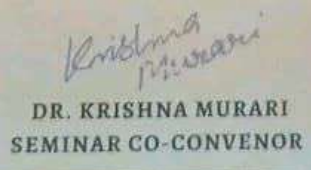 Krishna
Murari
DR. KRISHNA MURARI
SEMINAR CO-CONVENOR